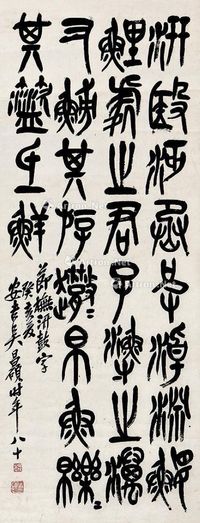 汧殹沔沔丞皮淖淵鰋
鯉處之君子漁之澫
又小魚其斿趣趣帛魚皪皪
其盜氐鮮
節橅汧鼓字
癸亥夏
安吉吳昌碩時年八十